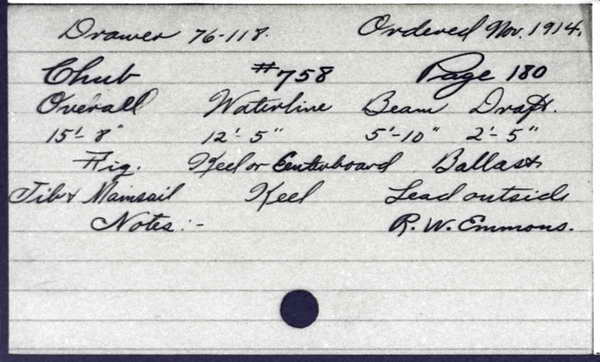 Drawer 76-118. Ordered Nov. 1914.
Chub #758 Page 180
Overall Waterline Beam Draft.
15'-8" 12'-5" 5'-10" 2'-5"
Fig. Keel or Centerboard Ballast
Jib & Mainsail Keel Lead outside
Notes:- R. W. Emmons.